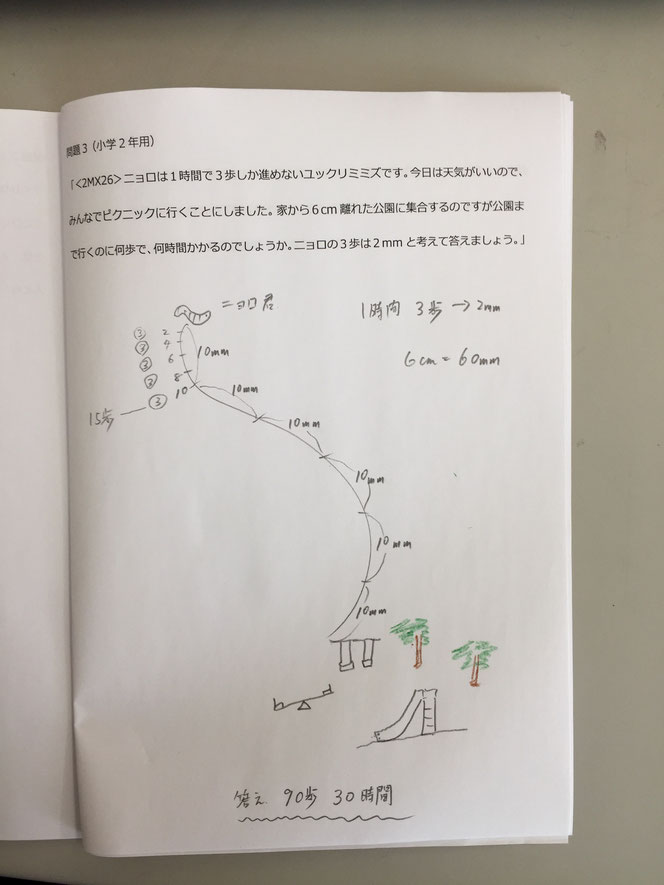 問題3（小学2年用）
「<2MX26>ニョロは1時間で3歩しか進めないユックリミミズです。今日は天気がいいので、
みんなでピクニックに行くことにしました。家から6cm離れた公園に集合するのですが公園ま
で行くのに何歩で、何時間かかるのでしょうか。ニョロの3歩は2mmと考えて答えましょう。」
ニョロ君
1時間 3歩→2mm
6cm=60mm
③ 2
③ 4
③ 6
③ 8
③ 10
15歩
10mm
10mm
10mm
10mm
10mm
10mm
答え 90歩 30時間